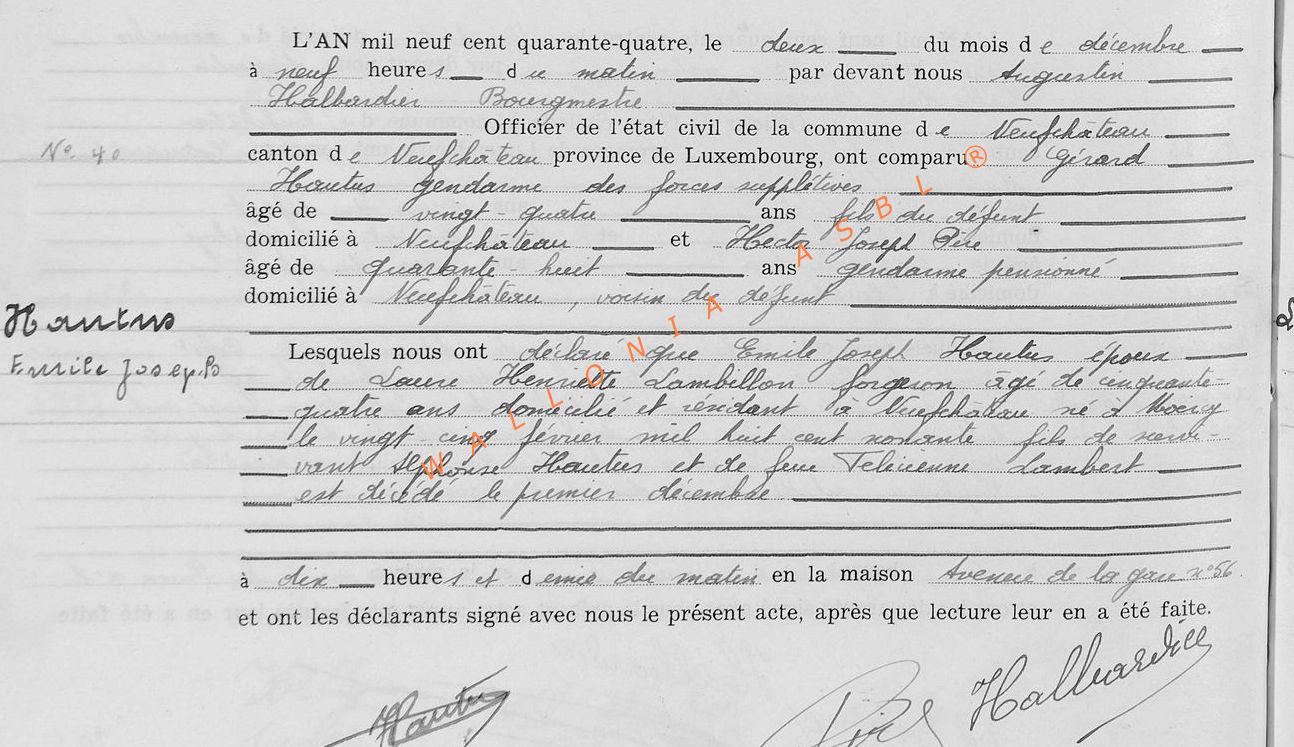 L'AN mil neuf cent quarante-quatre, le deux du mois de décembre
à neuf heures du matin par devant nous Augustin
Halbardier Bourgmestre
Officier de l'état civil de la commune de Neufchâteau
N° 40
canton de Neufchâteau province de Luxembourg, ont comparu Gérard
Hautus gendarme des forces supplétives
âgé de vingt-quatre ans fils du défunt
domicilié à Neufchâteau et Hector Joseph Pire
âgé de quarante-huit ans gendarme pensionné
domicilié à Neufchâteau, voisin du défunt
Hautus
Emile Joseph
Lesquels nous ont déclaré que Emile Joseph Hautus époux
de Laure Henriette Lambillon forgeron âgé de cinquante
quatre ans domicilié et résidant à Neufchâteau né à
le vingt-cinq février mil huit cent nonante fils de survi-
vant Alphonse Hautus et de feue Félicienne Lambert
est décédé le premier décembre
à dix heures et demie du matin en la maison Avenue de la gare n°56
et ont les déclarants signé avec nous le présent acte, après que lecture leur en a été faite.
Hautus
Halbardier
WALLONIA ASBL ®